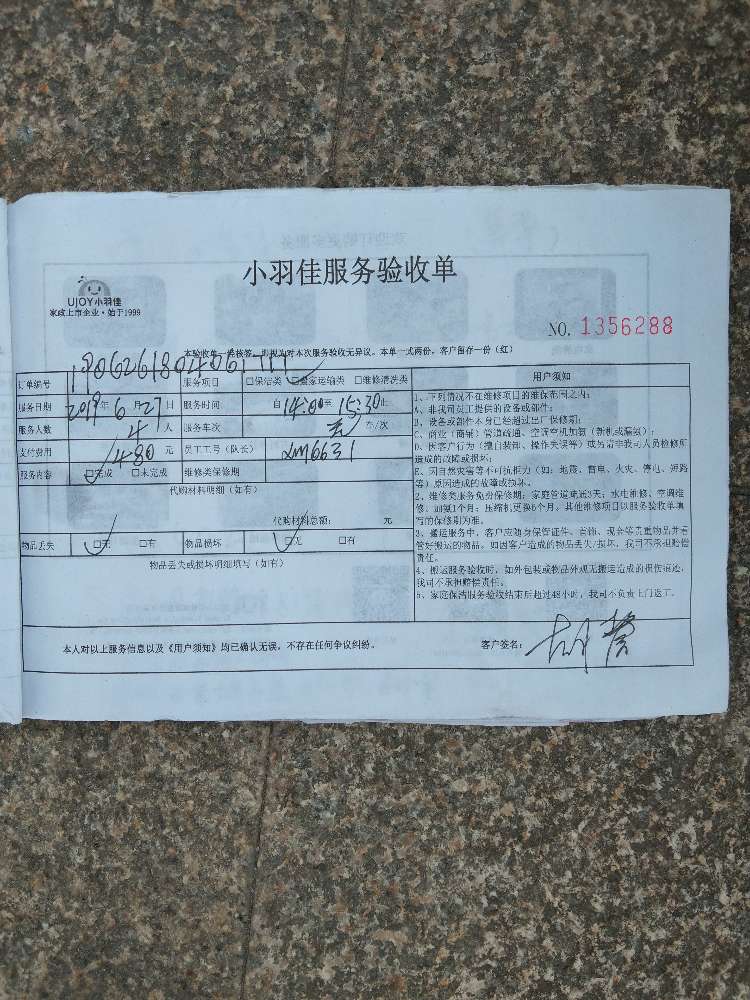 小羽佳服务验收单
UJOY小羽佳
家政上市企业·始于1999
NO. 1356288
本验收单一经核签，即视为对本次服务验收无异议。本单一式两份，客户留存一份（红）
订单编号 服务项目 □保洁类 □搬家运输类 □维修清洗类
服务日期 2019年6月27日 服务时间 自14:00至15:30止
服务人数 4人 服务车次 无 车/次
支付费用 480元 员工工号（队长） LM6631
服务内容 □完成 □未完成 维修类保修期
代购材料明细（如有）
代购材料总额： 元
物品丢失 □无 □有 物品损坏 □无 □有
物品丢失或损坏明细填写（如有）
用户须知
1、下列情况不在维修项目的维保范围之内：
A、非我司员工提供的设备或部件；
B、设备或部件本身已经超过出厂保修期；
C、商业（商铺）管道疏通、空调空机加氨（新机或漏氨）；
D、因客户行为（擅自装卸、操作失误等）或另请非我司人员检修所
造成的故障或损坏；
E、因自然灾害等不可抗力（如：地震、雷电、火灾、停电、短路
等）原因造成的故障或损坏。
2、维修类服务免费保修期：家庭管道疏通3天；水电维修、空调维
修、加氨1个月；压缩机更换6个月，其他维修项目以服务验收单填
写的保修期为准。
3、搬运服务中，客户应随身保管证件、首饰、现金等贵重物品并看
管好搬运的物品，如因客户造成的物品丢失/损坏，我司不承担赔偿
责任。
4、搬运服务验收时，如外包装或物品外观无搬运造成的损伤痕迹，
我司不承担赔偿责任。
5、家庭保洁服务验收结束后超过48小时，我司不负责上门返工。
本人对以上服务信息以及《用户须知》均已确认无误，不存在任何争议纠纷。 客户签名：